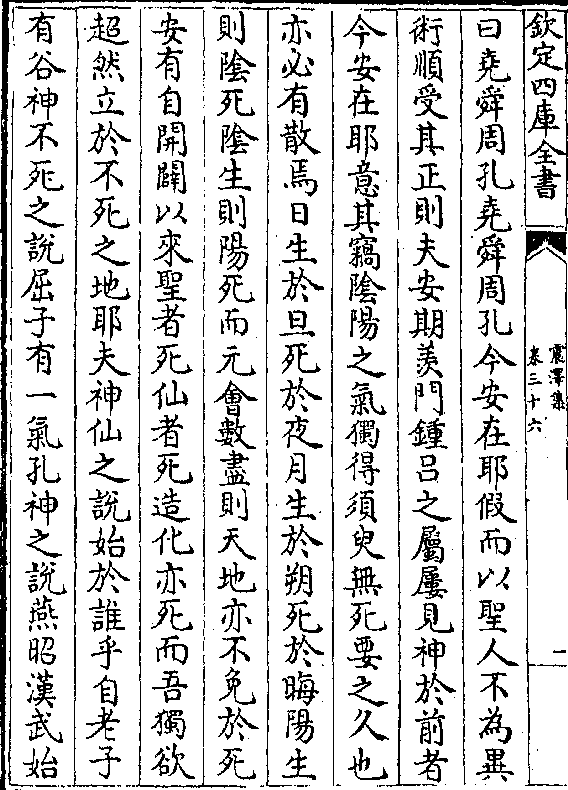 欽定四庫全書
震澤集
卷三十六
一
曰堯舜周孔堯舜周孔今安在耶假而以聖人不為異
術順受其正則夫安期羨門鍾呂之屬屢見神於前者
今安在耶意其竊陰陽之氣獨得須臾無死要之久也
亦必有散焉日生於旦死於夜月生於朔死於晦陽生
則陰死陰生則陽死而元會數盡則天地亦不免於死
安有自開闢以來聖者死仙者死造化亦死而吾獨欲
超然立於不死之地耶夫神仙之說始於誰乎自老子
有谷神不死之說屈子有一氣孔神之說燕昭漢武始